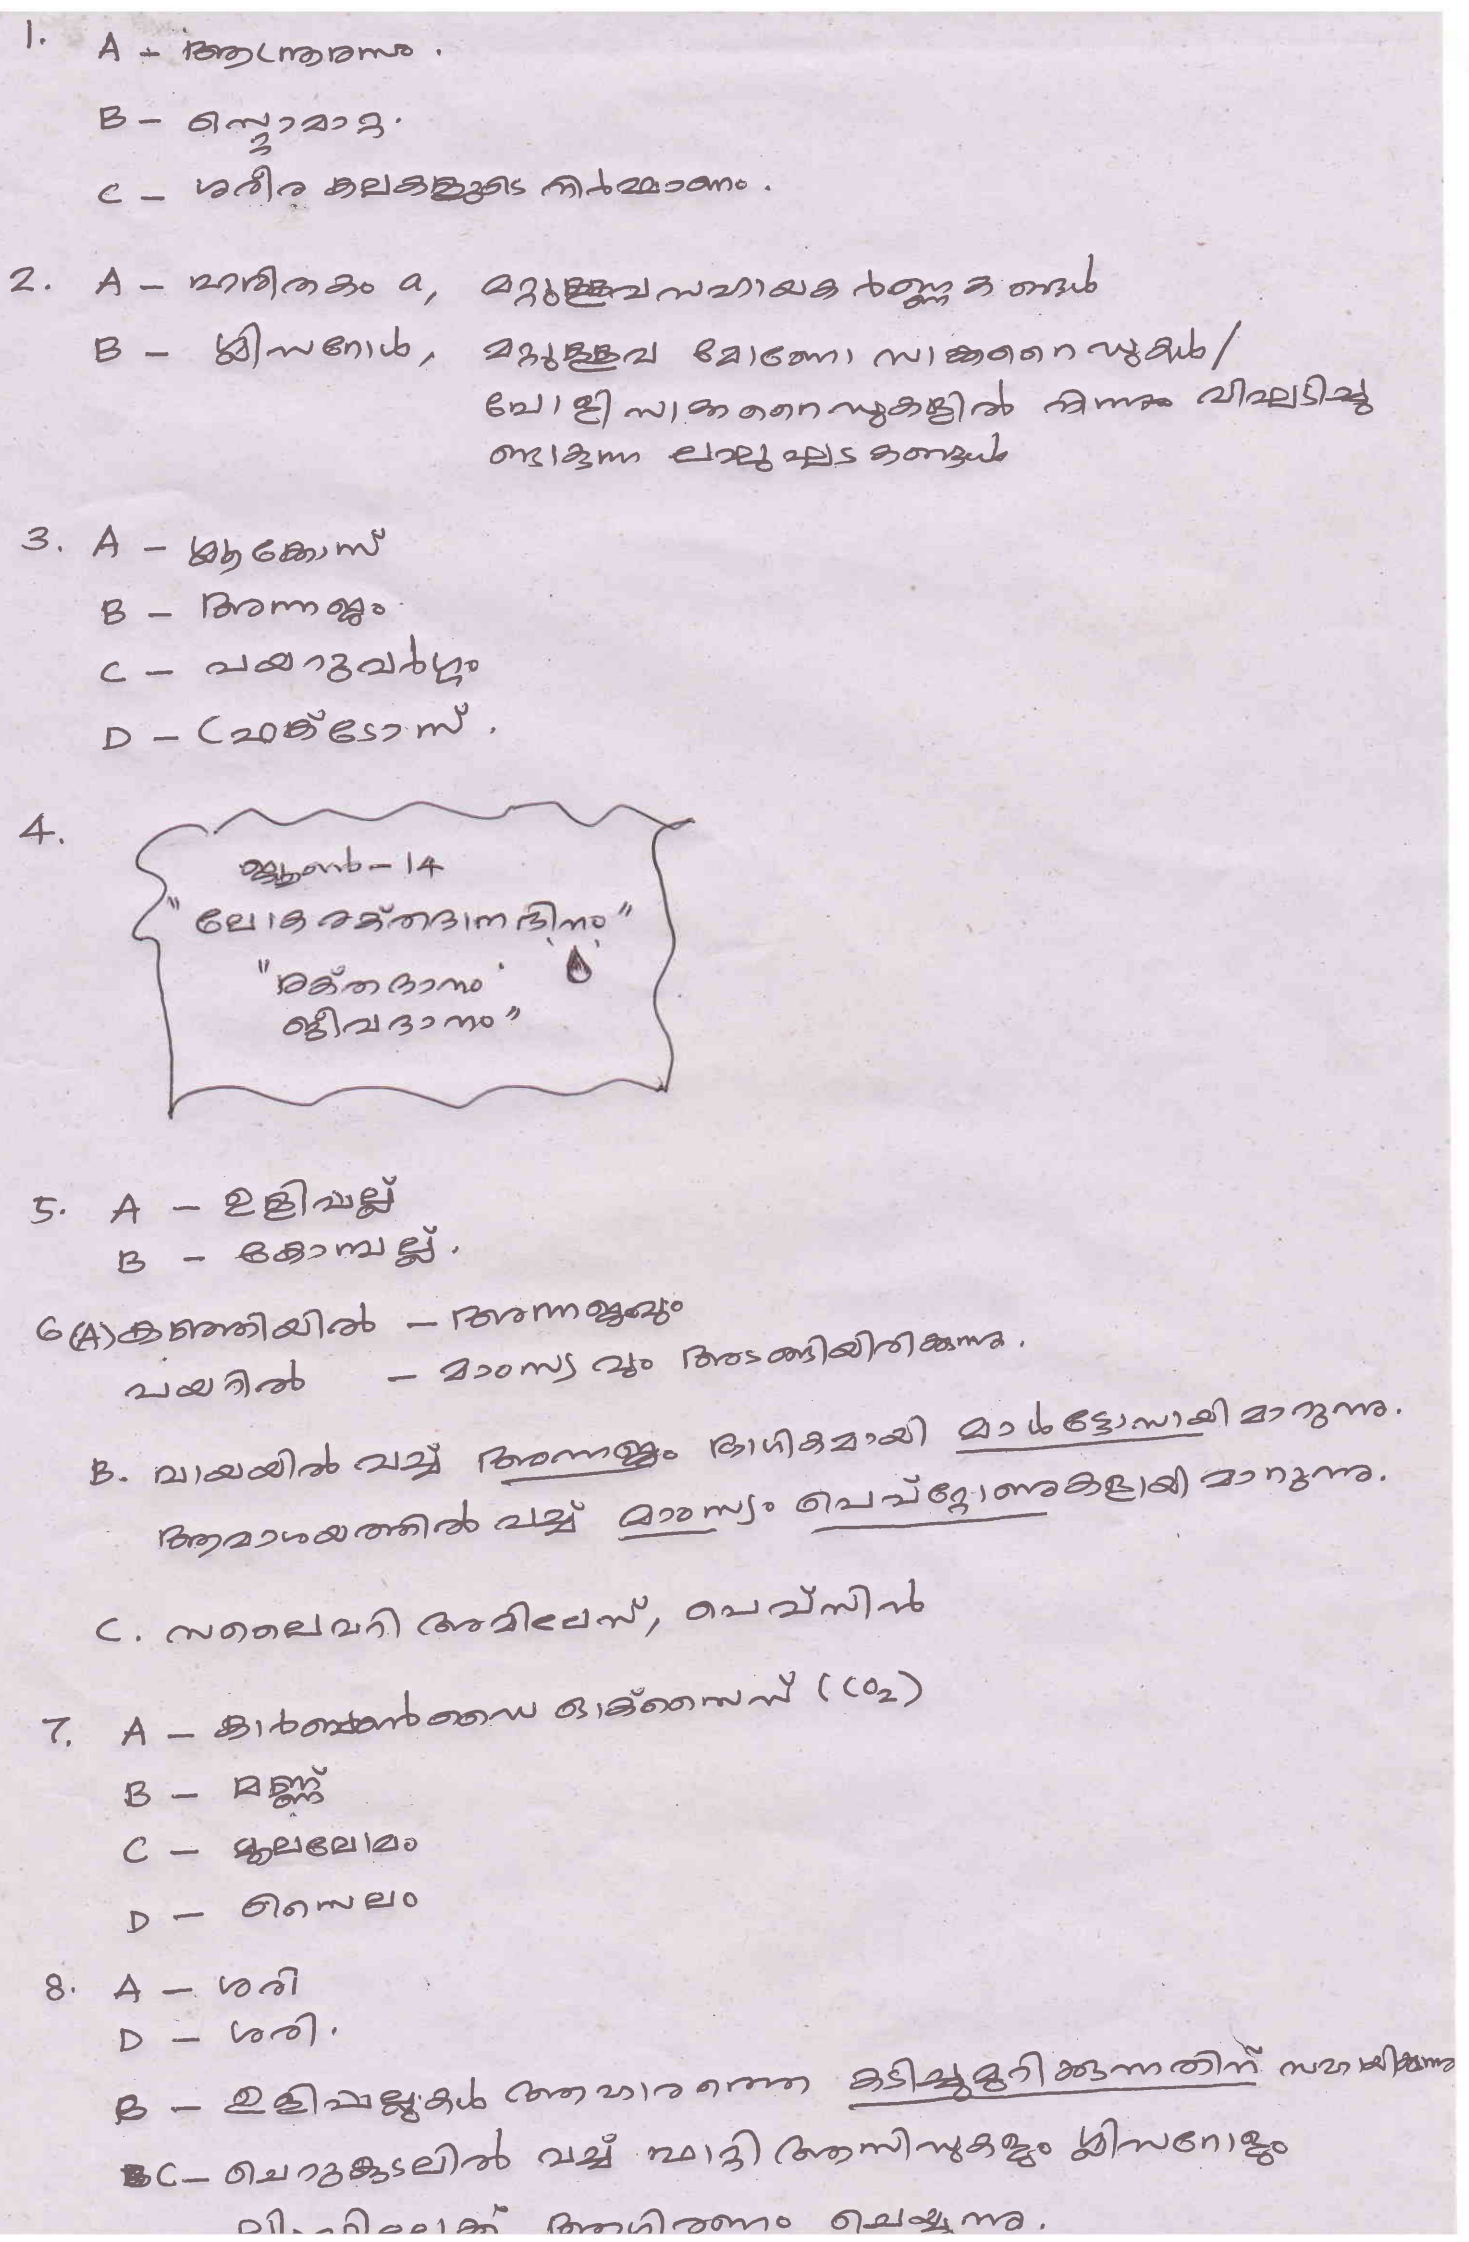 1. A - ആന്ത്രരസം.
B - സ്റ്റൊമാറ്റ.
C - ശരീര കലകളുടെ നിർമ്മാണം.
2. A - ഹരിതകം a, മറ്റുള്ളവ സഹായക വർണ്ണകങ്ങൾ
B - ഗ്ലിസറോൾ, മറ്റുള്ളവ മോണോ സാക്കറൈഡുകൾ/
പോളി സാക്കറൈഡുകളിൽ നിന്നും വിഘടിച്ചു
ണ്ടാകുന്ന ലഘു ഘടകങ്ങൾ
3. A - ഗ്ലൂക്കോസ്
B - അന്നജം
C - പയറുവർഗ്ഗം
D - ഫ്രക്ടോസ്.
4. ജൂൺ - 14
"ലോക രക്തദാന ദിനം"
"രക്തദാനം
ജീവദാനം"
5. A - ഉളിപ്പല്ല്
B - കോമ്പല്ല്.
6 (A) കഞ്ഞിയിൽ - അന്നജവും
പയറിൽ - മാംസ്യവും അടങ്ങിയിരിക്കുന്നു.
B. വായയിൽ വച്ച് അന്നജം ഭാഗികമായി മാൾട്ടോസായി മാറുന്നു.
ആമാശയത്തിൽ വച്ച് മാംസ്യം പെപ്റ്റോണുകളായി മാറുന്നു.
C. സലൈവറി അമിലേസ്, പെപ്സിൻ
7. A - കാർബൺ ഡൈ ഓക്സൈസ് (CO2)
B - മണ്ണ്
C - മൂലലോമം
D - സൈലം
8. A - ശരി
D - ശരി.
B - ഉളിപ്പല്ലുകൾ ആഹാരത്തെ കടിച്ചുമുറിക്കുന്നതിന് സഹായിക്കുന്നു
C - ചെറുകുടലിൽ വച്ച് ഫാറ്റി ആസിഡുകളും ഗ്ലിസറോളും
ആഗിരണം ചെയ്യുന്നു.